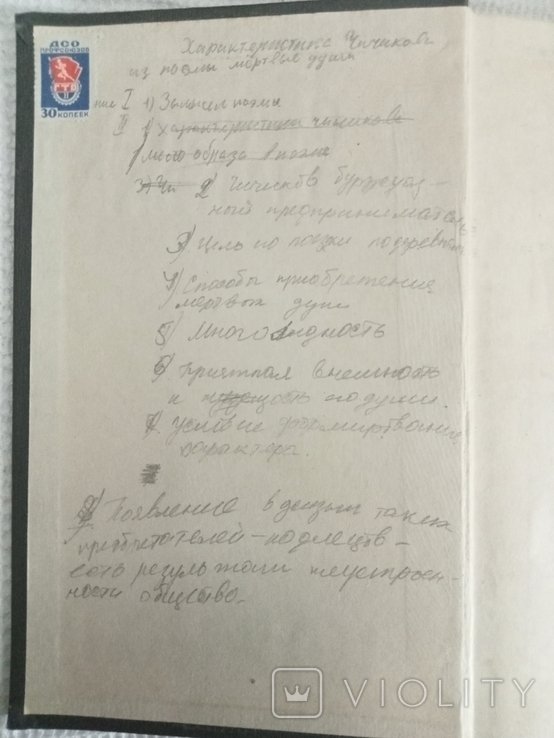 ДСО
ПРОФСОЮЗОВ
ГТО
30 КОПЕЕК
Характеристика Чичикова
из поэмы мертвые души
ние I 1) Замысел поэмы
II 1) Характеристика чичикова
1) Место образа в поэме
3) Чи 2) Чичиков буржуаз-
ный предприниматель
3) Цель по поездки по деревням
4) Способы приобретение
мертвых душ
5) Многоликость
6) Приятная внешность
и его души.
7) условие формиртвание
характера.
8) Появление в жизни таких
приобретателей - подлецов -
есть результат неустроен-
ности общество.
VIOLITY